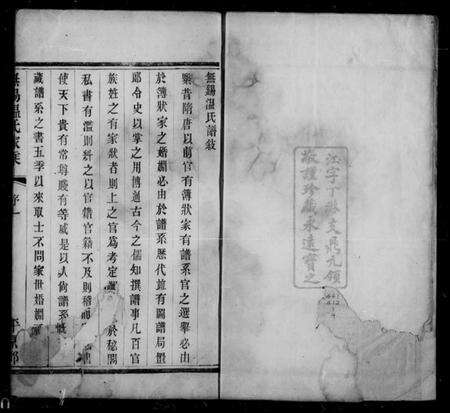 敬謹珍藏永遠寶之
無錫溫氏譜敘
粵昔隋唐以前官有簿狀家有譜系官之選舉必由
於簿狀家之婚姻必由於譜系歷代並有圖譜局置
郎令史以掌之用博通古今之儒知撰譜事凡百官
族姓之有家狀者則上之官為考定 於秘閣
私書有濫則糾之以官籍官籍不及則稽 書
使天下貴有常尊賤有等威是以人尚譜系
藏譜系之書五季以來取士不問家世婚姻
無錫溫氏家 序一